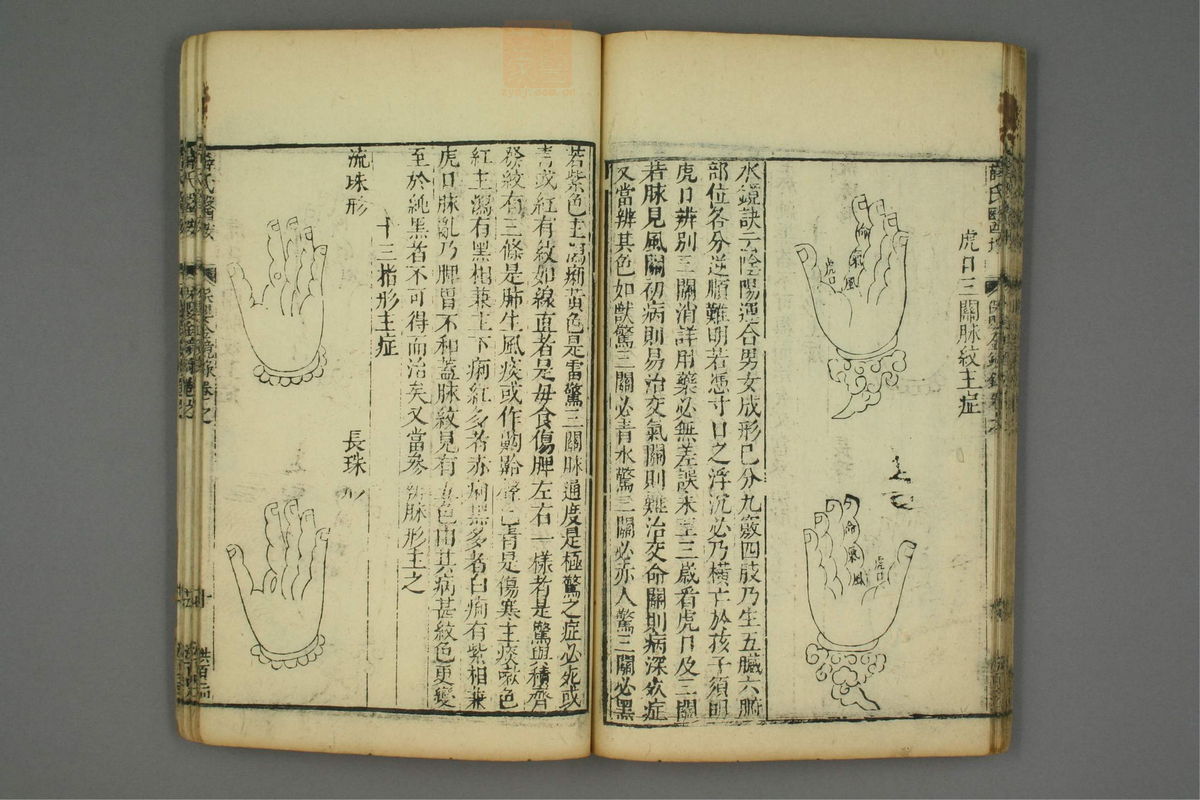 虎口三關脉紋主症
命
氣
風
虎口
命
氣
風
虎口
水鏡訣云陰陽運合男女成形已分九竅四肢乃生五臟六腑
部位各分逆順難明若憑寸口之浮沉必乃橫亡於孩子須明
虎口辨別三關消詳用藥必無差誤未至三歲看虎口及三關
若脉見風關初病則易治交氣關則難治交命關則病深款症
又當辨其色如獸驚三關必青水驚三關必赤人驚三關必黑
若紫色主瀉痢黃色是雷驚三關脉通度是極驚之症必死或
青或紅有紋如線直者是母食傷脾左右一樣者是驚與積齊
發紋有三條是肺生風痰或作齁䶎聲青是傷寒主痰嗽色
紅主瀉有黑相兼主下痢紅多者赤痢黑多者白痢有紫相兼
虎口脉亂乃脾胃不和蓋脉紋見有五色由其病甚紋色更變
至於純黑者不可得而治矣又當參脉形主之
十三指形主症
流珠形
長珠形
薛氏醫按